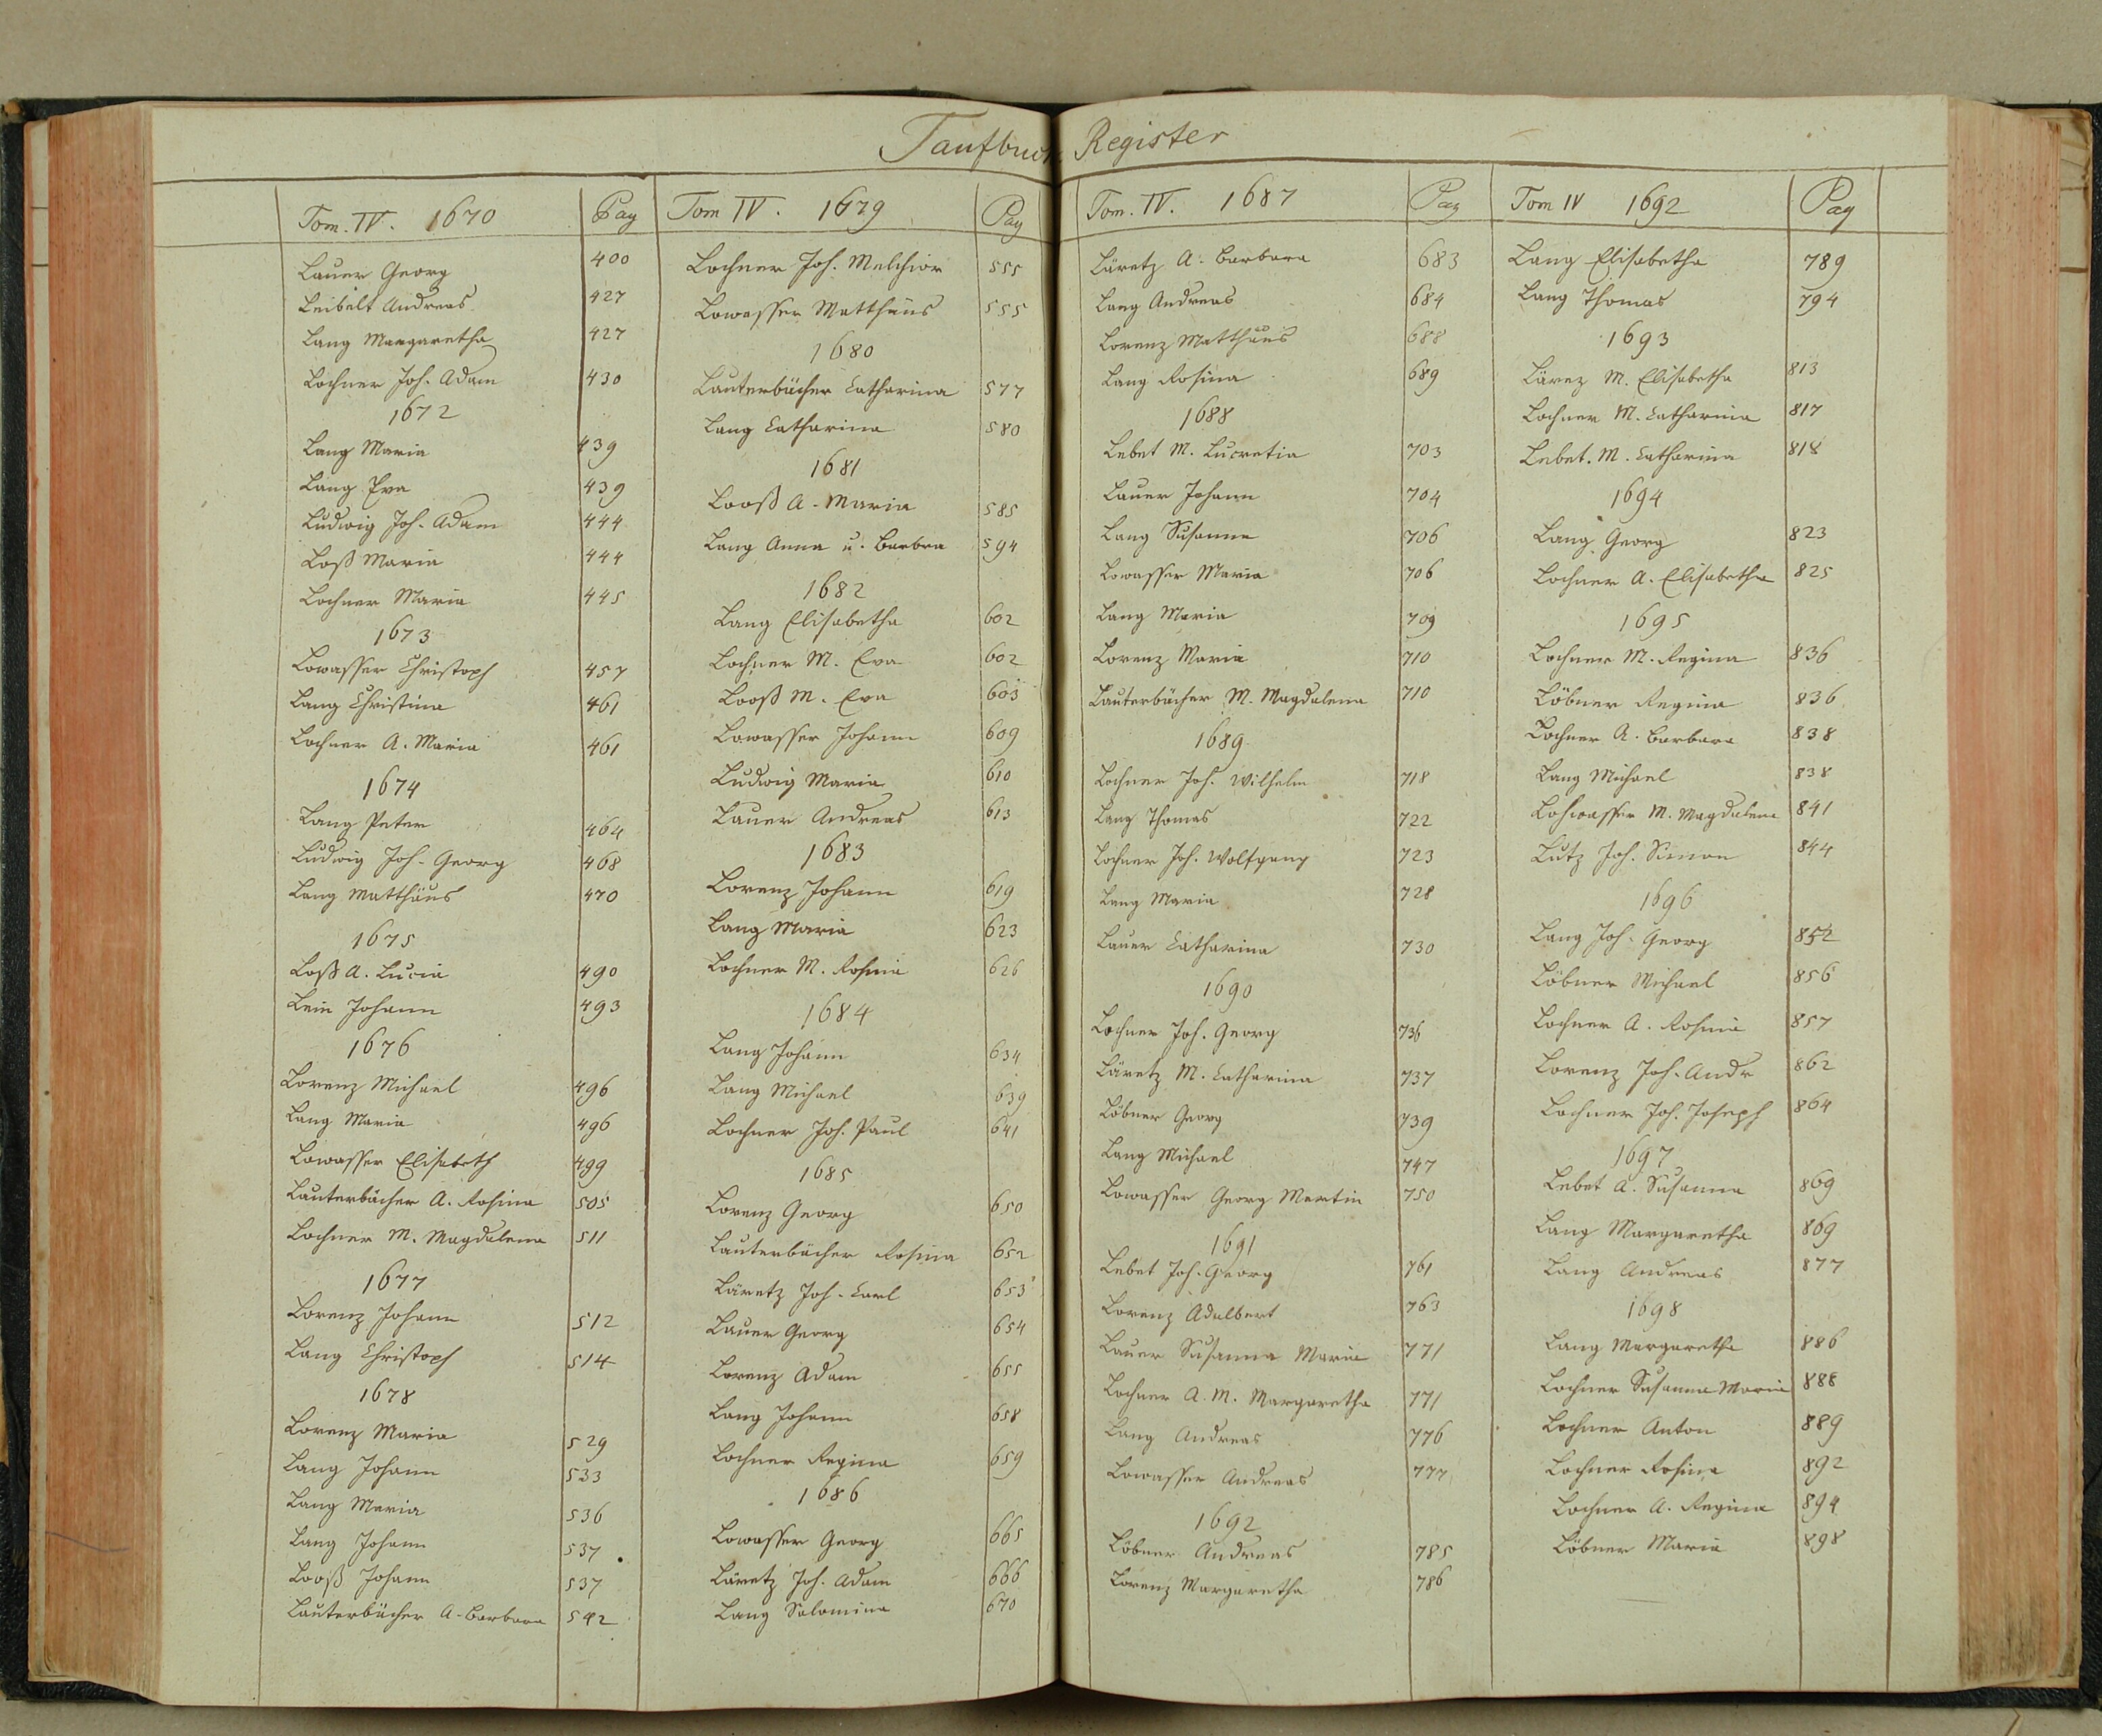 Taufbuch Register
Tom. IV. 1670 Pag
Lauer Georg 400
Leibelt Andreas 427
Lang Margaretha 427
Lochner Joh. Adam 430
1672
Lang Maria 439
Lang Eva 439
Ludwig Joh. Adam 444
Loß Maria 444
Lochner Maria 445
1673
Lowasser Christoph 457
Lang Christina 461
Lochner A. Maria 461
1674
Lang Peter 464
Ludwig Joh. Georg 468
Lang Matthäus 470
1675
Loß A. Lucia 490
Lein Johann 493
1676
Lorenz Michael 496
Lang Maria 496
Lowasser Elisabeth 499
Lauterbächer A. Rosina 505
Lochner M. Magdalena 511
1677
Lorenz Johann 512
Lang Christoph 514
1678
Lorenz Maria 529
Lang Johann 533
Lang Maria 536
Lang Johann 537
Looß Johann 537
Lauterbächer A. Barbara 542
Tom IV. 1679 Pag
Lochner Joh. Melchior 555
Lowasser Matthäus 555
1680
Lauterbächer Catharina 577
Lang Catharina 580
1681
Looß A. Maria 585
Lang Anna u. Barbra 594
1682
Lang Elisabetha 602
Lochner M. Eva 602
Looß M. Eva 603
Lowasser Johann 609
Ludwig Maria 610
Lauer Andreas 613
1683
Lorenz Johann 619
Lang Maria 623
Lochner M. Rosina 626
1684
Lang Johann 634
Lang Michael 639
Lochner Joh. Paul 641
1685
Lorenz Georg 650
Lauterbächer Rosina 652
Läretz Joh. Carl 653
Lauer Georg 654
Lorenz Adam 655
Lang Johann 658
Lochner Regina 659
1686
Lowasser Georg 665
Läretz Joh. Adam 666
Lang Salomina 670
Tom. IV. 1687 Pag
Läretz A. Barbara 683
Lang Andreas 684
Lorenz Matthäus 688
Lang Rosina 689
1688
Lebet M. Lucretia 703
Lauer Johann 704
Lang Susanna 706
Lowasser Maria 706
Lang Maria 709
Lorenz Maria 710
Lauterbächer M. Magdalena 710
1689
Lochner Joh. Wilhelm 718
Lang Thomas 722
Lochner Joh. Wolfgang 723
Lang Maria 728
Lauer Catharina 730
1690
Lochner Joh. Georg 736
Läretz M. Catharina 737
Löbner Georg 739
Lang Michael 747
Lowasser Georg Martin 750
1691
Lebet Joh. Georg 761
Lorenz Adalbert 763
Lauer Susanna Maria 771
Lochner A. M. Margaretha 771
Lang Andreas 776
Lowasser Andreas 777
1692
Löbner Andreas 785
Lorenz Margaretha 786
Tom IV 1692 Pag
Lang Elisabetha 789
Lang Thomas 794
1693
Lärez M. Elisabetha 813
Lochner M. Catharina 817
Lebet. M. Catharina 818
1694
Lang Georg 823
Lochner A. Elisabetha 825
1695
Lochner M. Regina 836
Löbner Regina 836
Lochner A. Barbara 838
Lang Michael 838
Lohwasser M. Magdalena 841
Lutz Joh. Simon 844
1696
Lang Joh. Georg 852
Löbner Michael 856
Lochner A. Rosina 857
Lorenz Joh. Andr 862
Lochner Joh. Joseph 864
1697
Lebet A. Susanna 869
Lang Margaretha 869
Lang Andreas 877
1698
Lang Margaretha 886
Lochner Susanna Maria 888
Lochner Anton 889
Lochner Rosina 892
Lochner A. Regina 894
Löbner Maria 898